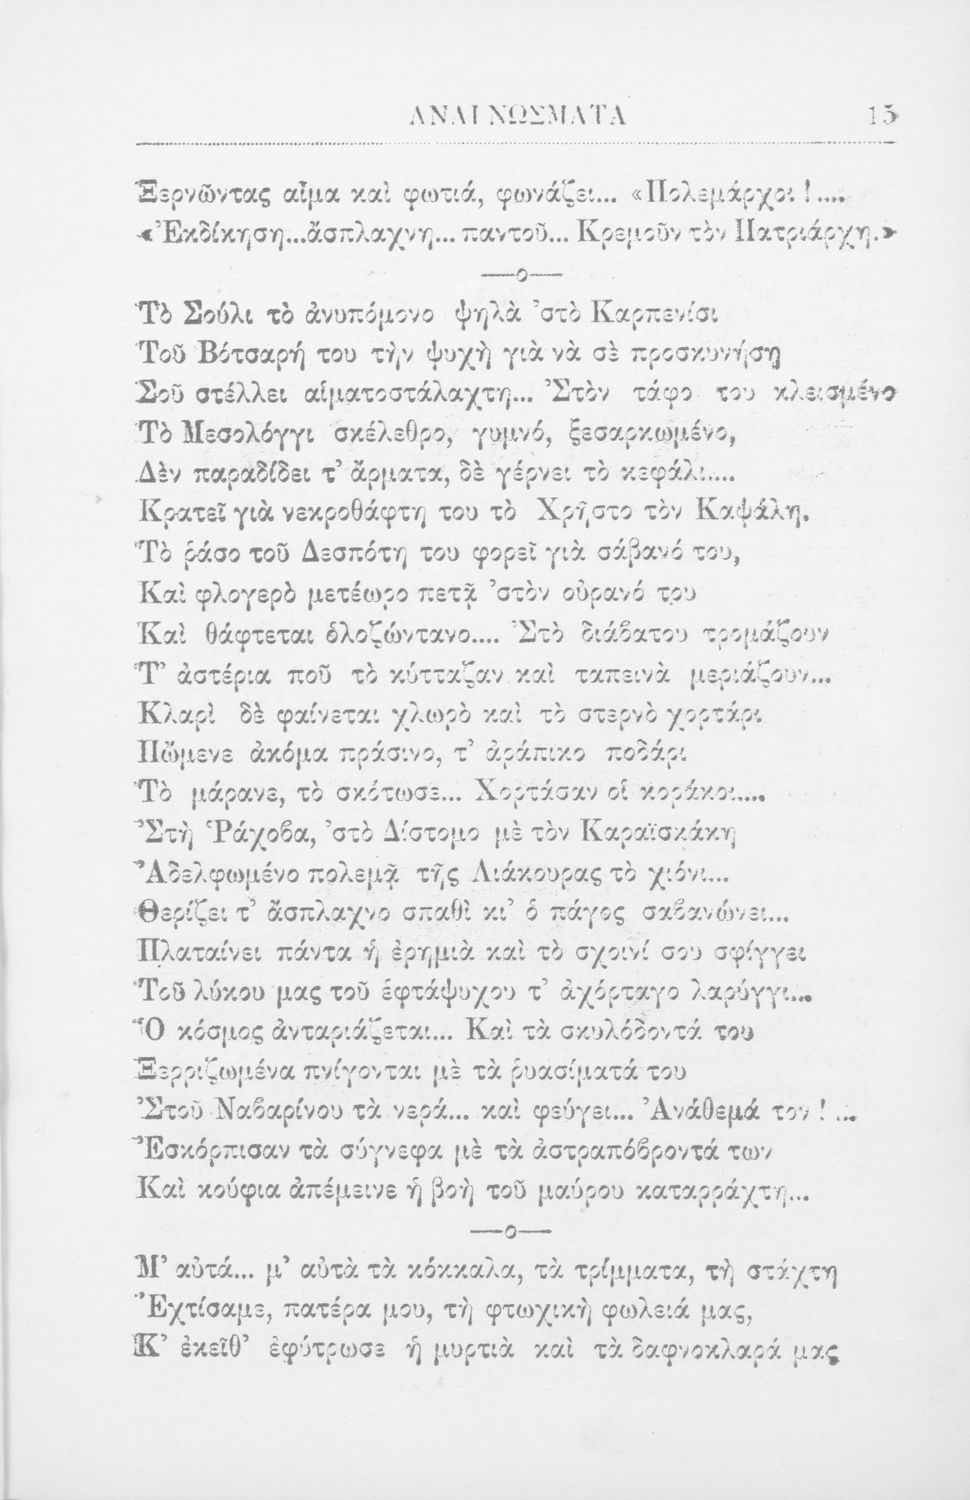 ΑΝΑΓΝΩΣΜΑΤΑ 15
Ξερνῶντας αἷμα καὶ φωτιά, φωνάζει... «Πολεμάρχοι!....
«Ἐκδίκηση...ἄσπλαχνη... παντοῦ... Κρεμοῦν τὸν Πατριάρχη.»
—ο—
Τὸ Σούλι τὸ ἀνυπόμονο ψηλὰ ’στὸ Καρπενίσι
Τοῦ Βότσαρή του τὴν ψυχὴ γιὰ νὰ σὲ προσκυνήσῃ
Σοῦ στέλλει αἱματοστάλαχτη... ’Στὸν τάφο του κλεισμένο
Τὸ Μεσολόγγι σκέλεθρο, γυμνό, ξεσαρκωμένο,
Δὲν παραδίδει τ’ ἄρματα, δὲ γέρνει τὸ κεφάλι....
Κρατεῖ γιὰ νεκροθάφτη του τὸ Χρῆστο τὸν Καψάλη.
Τὸ ῥάσο τοῦ Δεσπότη του φορεῖ γιὰ σάβανό του,
Καὶ φλογερὸ μετέωρο πετᾷ ’στὸν οὐρανό του
Καὶ θάφτεται ὁλοζώντανο.... ’Στὸ διάϐατου τρομάζουν
Τ’ ἀστέρια ποῦ τὸ κύτταζαν καὶ ταπεινὰ μεριάζουν...
Κλαρὶ δὲ φαίνεται χλωρὸ καὶ τὸ στερνὸ χορτάρι
Πὤμενε ἀκόμα πράσινο, τ’ ἀράπικο ποδάρι
Τὸ μάρανε, τὸ σκότωσε... Χορτάσαν οἱ κοράκοι....
’Στὴ Ῥάχοϐα, ’στὸ Δίστομο μὲ τὸν Καραϊσκάκη
Ἀδελφωμένο πολεμᾷ τῆς Λιάκουρας τὸ χιόνι...
Θερίζει τ’ ἄσπλαχνο σπαθὶ κι’ ὁ πάγος σαϐανώνει...
Πλαταίνει πάντα ἡ ἐρημιὰ καὶ τὸ σχοινί σου σφίγγει
Τοῦ λύκου μας τοῦ ἑφτάψυχου τ’ ἀχόρταγο λαρύγγι...
Ὁ κόσμος ἀνταριάζεται... Καὶ τὰ σκυλόδοντά του
Ξερριζωμένα πνίγονται μὲ τὰ ῥυασίματά του
’Στοῦ Ναϐαρίνου τὰ νερά... καὶ φεύγει... Ἀνάθεμά τον!...
Ἐσκόρπισαν τὰ σύγνεφα μὲ τὰ ἀστραπόϐροντά των
Καὶ κούφια ἀπέμεινε ἡ βοὴ τοῦ μαύρου καταρράχτη...
—ο—
Μ’ αὐτά... μ’ αὐτὰ τὰ κόκκαλα, τὰ τρίμματα, τὴ στάχτη
Ἐχτίσαμε, πατέρα μου, τὴ φτωχικὴ φωλειά μας,
Κ’ ἐκεῖθ’ ἐφύτρωσε ἡ μυρτιὰ καὶ τὰ δαφνοκλαρά μας